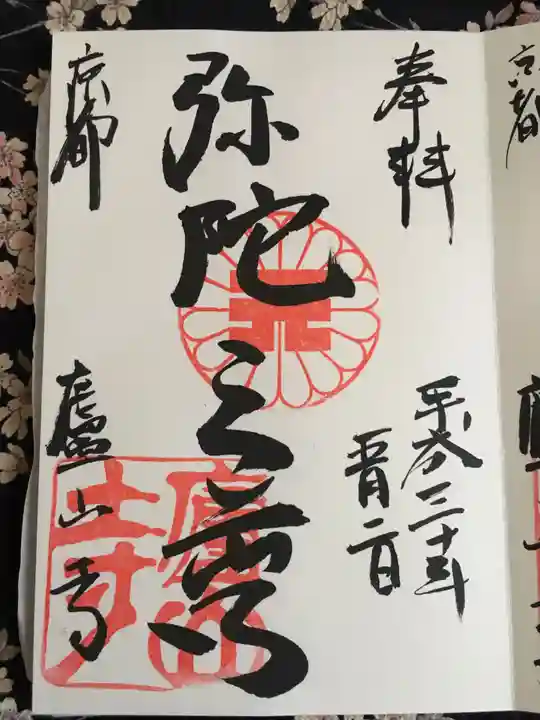 奉拝
平成三十年
五月二日
弥陀三尊
京都
廬山寺
廬山寺
京都